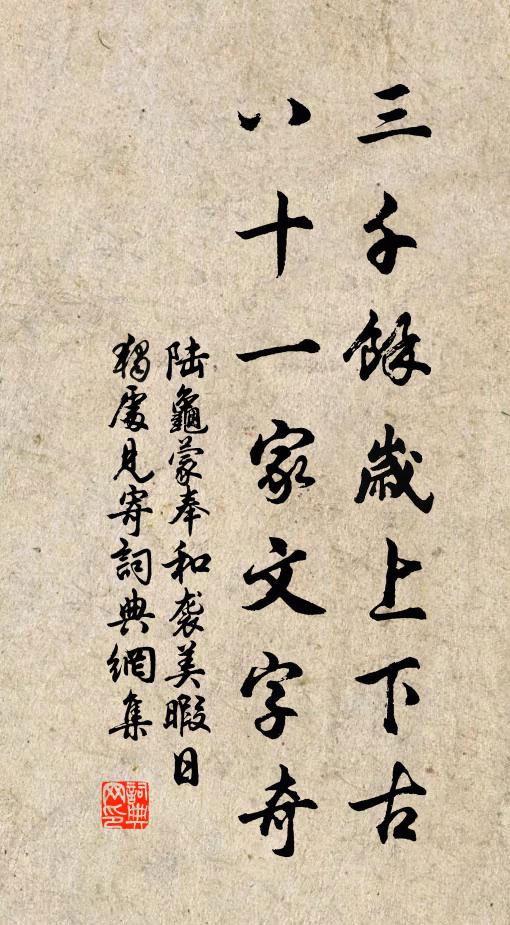 三千餘歲上下古
八十一家文字奇
陆龜蒙奉和袭美暇日
獨處見寄詞典網集
詞典网印